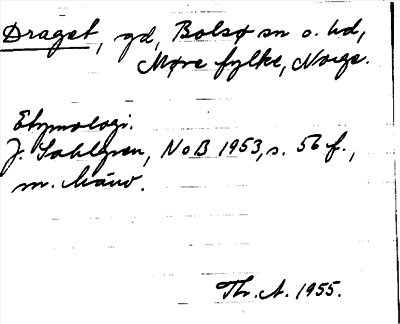 Draget, gd, Bolsø sn o. hd,
Møre fylke, Norge.
Etymologi.
J. Sahlgren, NoB 1953, s. 56 f.,
m. hänv.
Th. A. 1955.